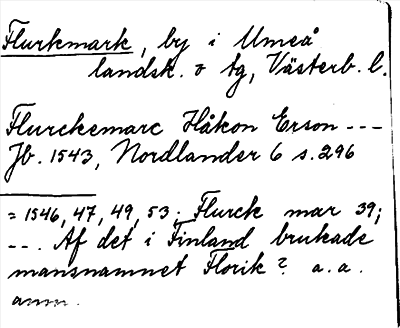 Flurkmark, by i Umeå
landsk. o tg, Västerb. l.
Flurckemarc Håkon Erson ---
Jb. 1543, Nordlander 6 s. 296
= 1546, 47, 49, 53; Flurck mar 39;
--. Af det i Finland brukade
mansnamnet Florik? a. a.
anm.